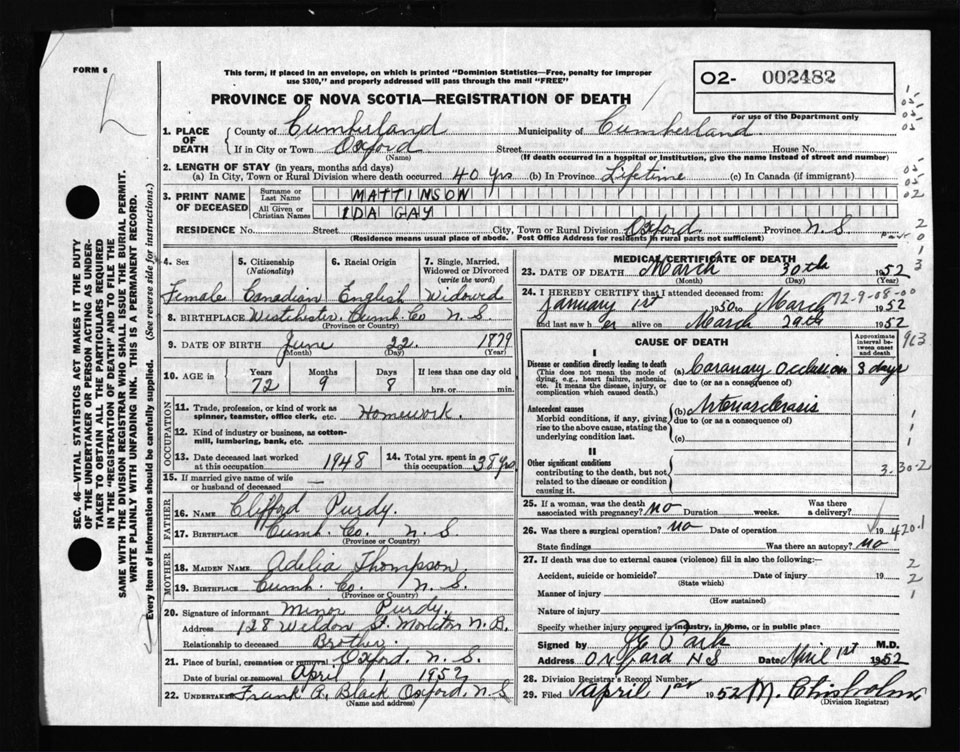 FORM 6
This form, if placed in an envelope, on which is printed "Dominion Statistics—Free, penalty for improper
use $300," and properly addressed will pass through the mail "FREE"
O2- 002482
For use of the Department only
PROVINCE OF NOVA SCOTIA—REGISTRATION OF DEATH
1. PLACE OF DEATH
County of Cumberland Municipality of Cumberland
If in City or Town Oxford Street House No.
(Name) (If death occurred in a hospital or institution, give the name instead of street and number)
2. LENGTH OF STAY (in years, months and days)
(a) In City, Town or Rural Division where death occurred 40 yrs (b) In Province Lifetime (c) In Canada (if immigrant)
3. PRINT NAME OF DECEASED
Surname or Last Name MATTINSON
All Given or Christian Names IDA GAY
RESIDENCE No. Street City, Town or Rural Division Oxford Province N.S.
(Residence means usual place of abode. Post Office Address for residents in rural parts not sufficient)
4. Sex 5. Citizenship (Nationality) 6. Racial Origin 7. Single, Married, Widowed or Divorced (write the word)
Female Canadian English Widowed
8. BIRTHPLACE Westchester Cumb. Co. N.S.
(Province or Country)
9. DATE OF BIRTH June 22 1879
(Month) (Day) (Year)
10. AGE in Years Months Days If less than one day old
72 9 8 hrs. or min.
OCCUPATION
11. Trade, profession, or kind of work as spinner, teamster, office clerk, etc. Homework.
12. Kind of industry or business, as cotton-mill, lumbering, bank, etc.
13. Date deceased last worked at this occupation 1948 14. Total yrs. spent in this occupation 38 yrs
15. If married give name of wife or husband of deceased —
FATHER
16. Name Clifford Purdy.
17. Birthplace Cumb. Co. N.S.
(Province or Country)
MOTHER
18. Maiden Name Adelia Thompson
19. Birthplace Cumb. Co. N.S.
(Province or Country)
20. Signature of informant Minor Purdy.
Address 128 Weldon St. Moncton N.B.
Relationship to deceased Brother.
21. Place of burial, cremation or removal Oxford. N.S.
Date of burial or removal April 1 1952
22. Undertaker Frank A. Black Oxford, N.S
(Name and address)
MEDICAL CERTIFICATE OF DEATH
23. DATE OF DEATH March 30th 1952
(Month) (Day) (Year)
24. I HEREBY CERTIFY that I attended deceased from:
January 1st 1950 to March 1952
72-9-08-00
and last saw her alive on March 29th 1952
CAUSE OF DEATH
Approximate interval between onset and death
963
I
Disease or condition directly leading to death
(This does not mean the mode of dying, e.g., heart failure, asthenia, etc. It means the disease, injury, or complication which caused death.)
(a) Coronary Occlusion 3 days
due to (or as a consequence of)
Antecedent causes
Morbid conditions, if any, giving rise to the above cause, stating the underlying condition last.
(b) Arteriosclerosis
due to (or as a consequence of)
(c)
II
Other significant conditions
contributing to the death, but not related to the disease or condition causing it.
3.30-2
25. If a woman, was the death associated with pregnancy? no Duration weeks. Was there a delivery?
26. Was there a surgical operation? no Date of operation 19
420.1
State findings Was there an autopsy? no
27. If death was due to external causes (violence) fill in also the following:—
Accident, suicide or homicide? Date of injury 19
(State which)
Manner of injury
(How sustained)
Nature of injury
Specify whether injury occurred in industry, in home, or in public place
Signed by M.D.
Address NS Date April 1st 1952
28. Division Registrar's Record Number
29. Filed April 1st 1952 M. Chisholm
(Division Registrar)
SEC. 46—VITAL STATISTICS ACT MAKES IT THE DUTY
OF THE UNDERTAKER OR PERSON ACTING AS UNDER-
TAKER TO OBTAIN ALL THE PARTICULARS REQUIRED
IN THE "REGISTRATION OF DEATH" AND TO FILE THE
SAME WITH THE DIVISION REGISTRAR WHO SHALL ISSUE THE BURIAL PERMIT.
WRITE PLAINLY WITH UNFADING INK. THIS IS A PERMANENT RECORD.
Every item of information should be carefully supplied. (See reverse side for instructions.)